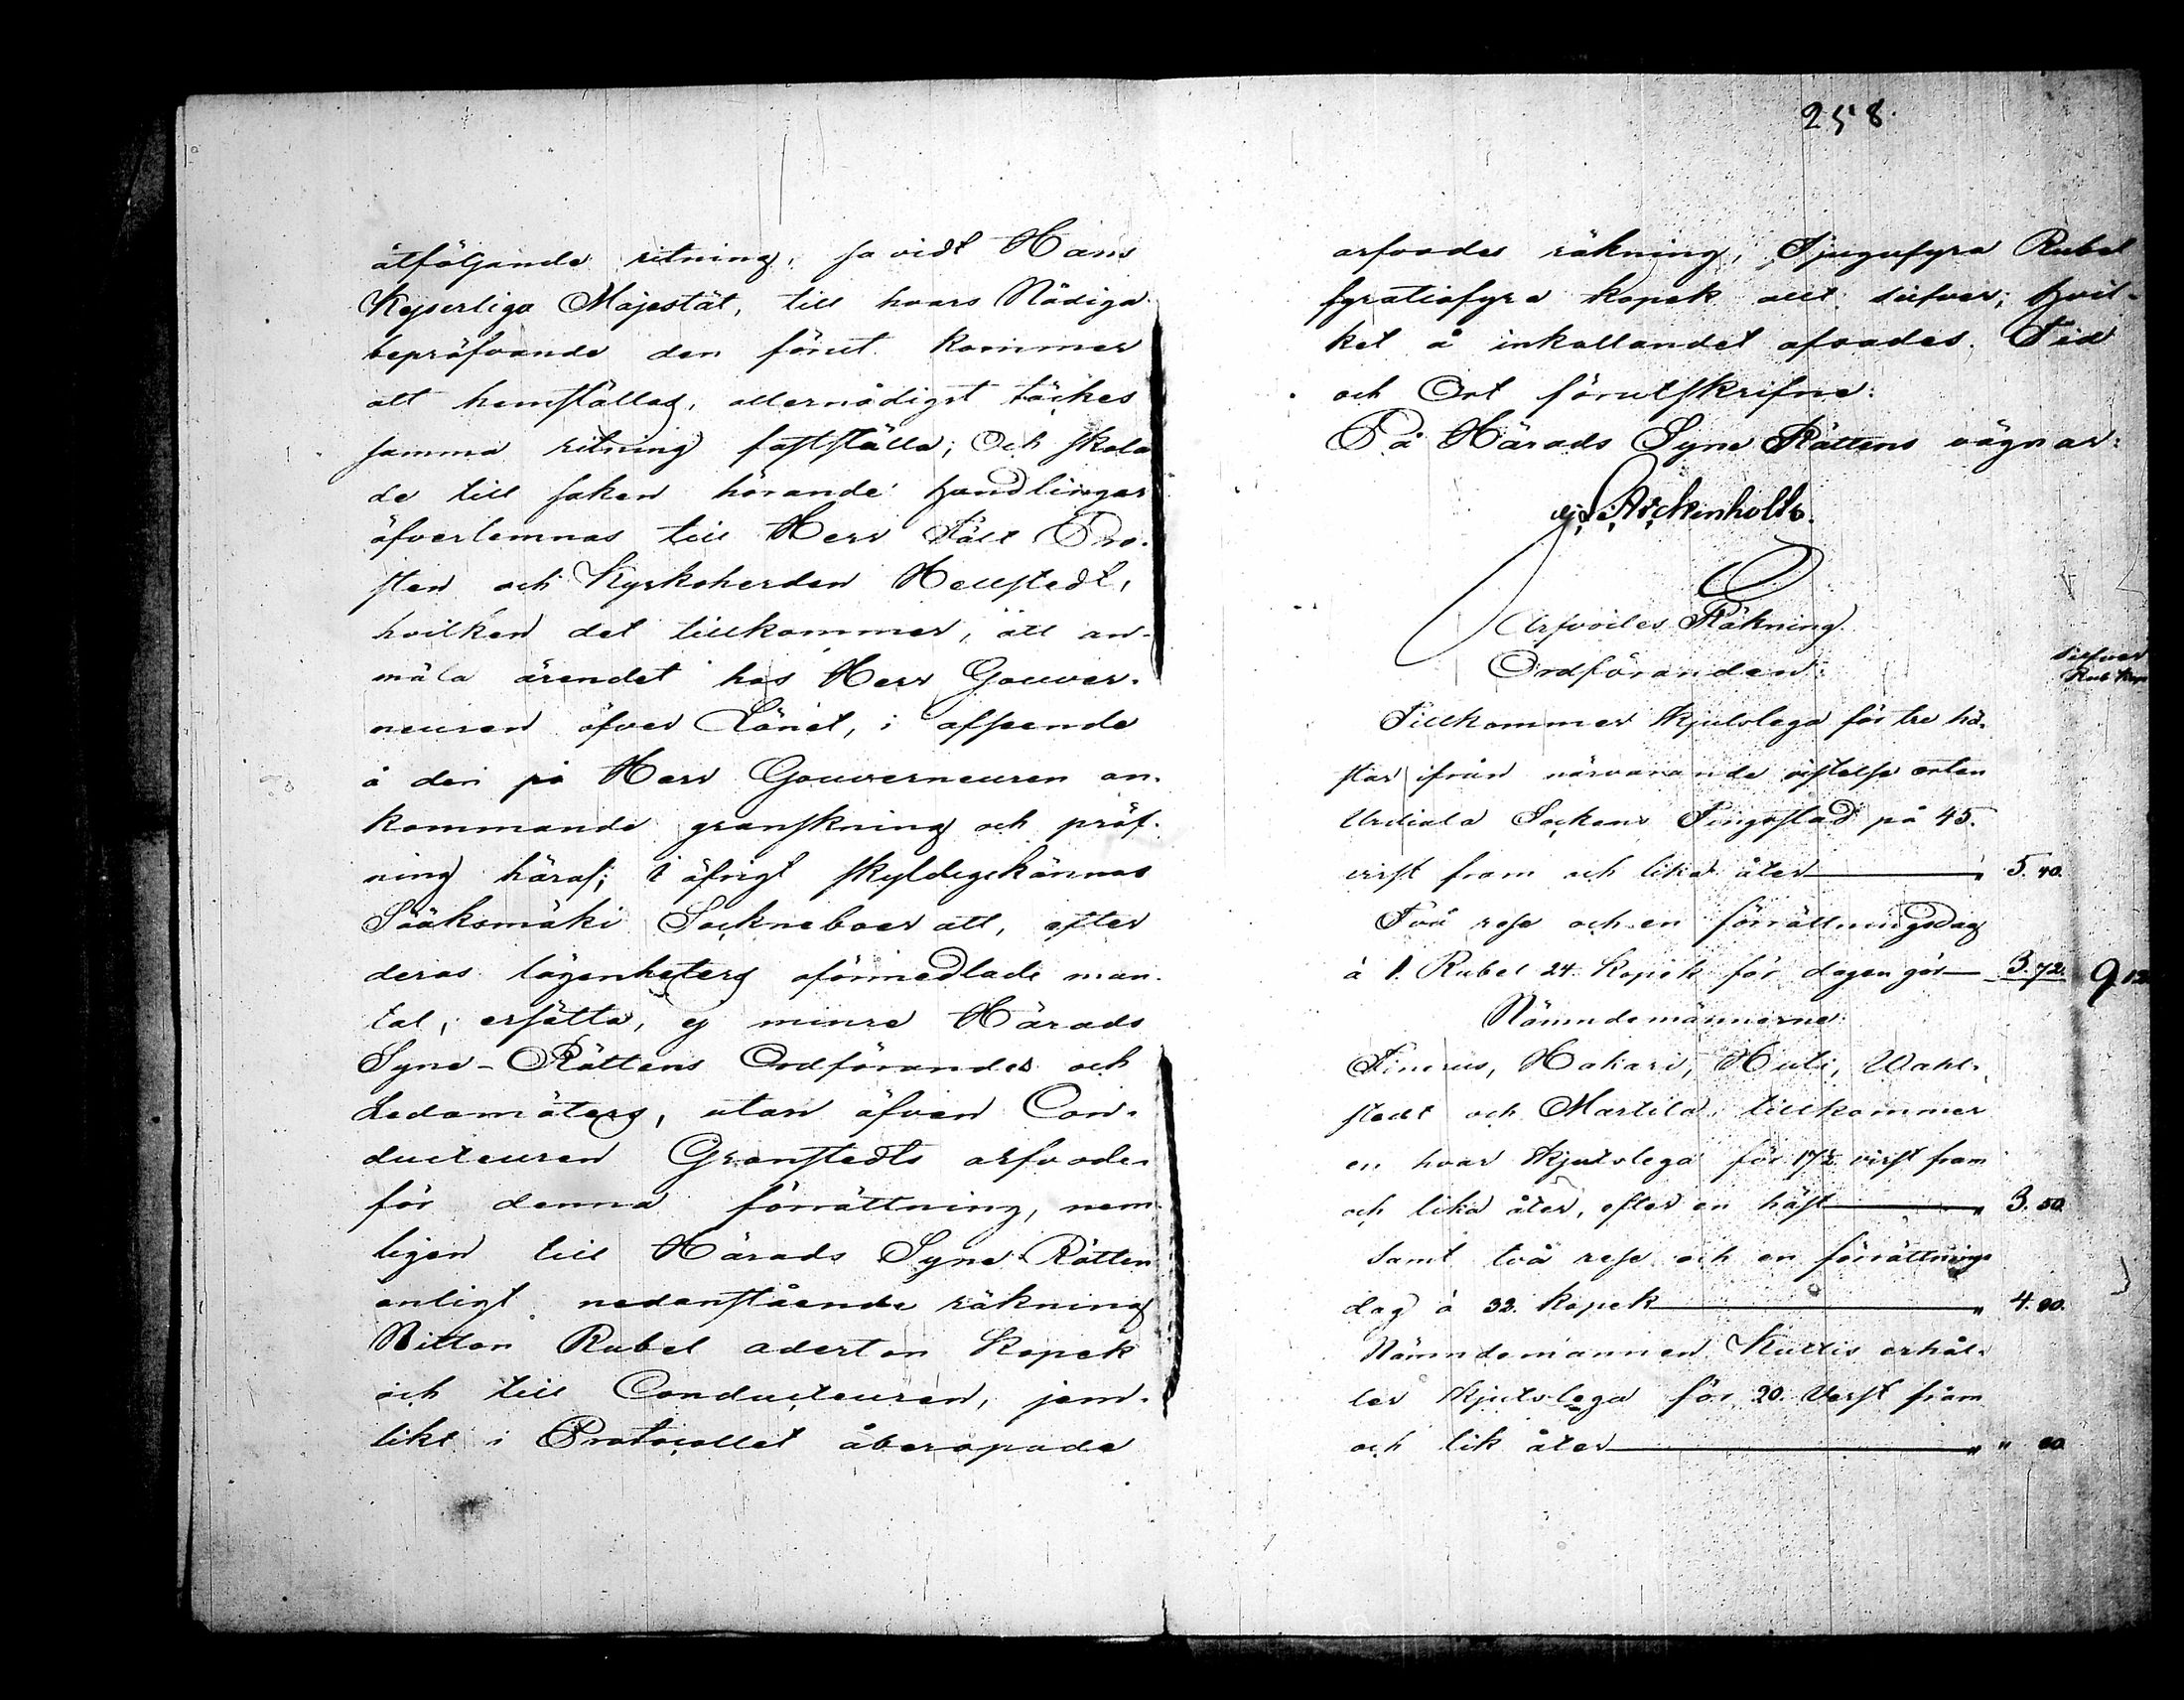 åtföljande ritning, så vidt Hans
Kejserliga Majestät, till hvars Nådiga
bepröfvande den först kommer
att hemställas, allernådigst täckes
samma ritning fastställa; Och skola
de till saken hörande handlingar
öfverlemnas till Herr Fält Pro-
sten och Kyrkoherden Hellstedt,
hvilken det tillkommer, att an-
mäla ärendet hos Herr Gouver-
neuren öfver Länet, i afseende
å den på Herr Gouverneuren an-
kommande granskning och pröf-
ning häraf; i öfrigt skyldigkännas
Sääksmäki Sockneboer att, efter
deras lägenheters oförmedlade man-
tal, ersätta, ej minre Härads
Syne-Rättens Ordförandes och
Ledamöters, utan äfven Con-
ducteuren Granstedts arfvode
för denna förrättning, nem-
ligen till Härads Syne Rätten
enligt nedanstående räkning
Nitton Rubel aderton Kopek
och till Conducteuren, jem-
likt i Protocollet åberopade
258.
arfvodes räkning, Tjugufyra Rubel
fyratiofyra kopek allt silfver; hvil-
ket å inkallandet afsades. Tid
och Ort förutskrifne:
På Härads Syne Rättens vägnar:
Arckenholtz.
Arfvodes Räkning.
Ordföranden:
Silfver
Rub. Kop
Tillkommer skjutslega för tre hä-
star ifrån närvarande vistelse orten
Urdiala Sockens Tingsstad på 45.
virst fram och lika åter " 5. 40.
Två rese och en förrättningsdag
à 1. Rubel 24. Kopek för dagen gör 3. 72. 9.12
Nämndemännerne:
Finerus, Hakari, Huti, Wahl-
stedt och Martila, tillkommer
en hvar skjutslega för 17½ virst fram
och lika åter, efter en häst " 3. 50.
Samt två rese och en förrättnings
dag à 33. Kopek " 4. 90.
Nämndemannen Kuttis erhål-
ler skjutslega för 20. Verst fram
och lik åter " " 80.